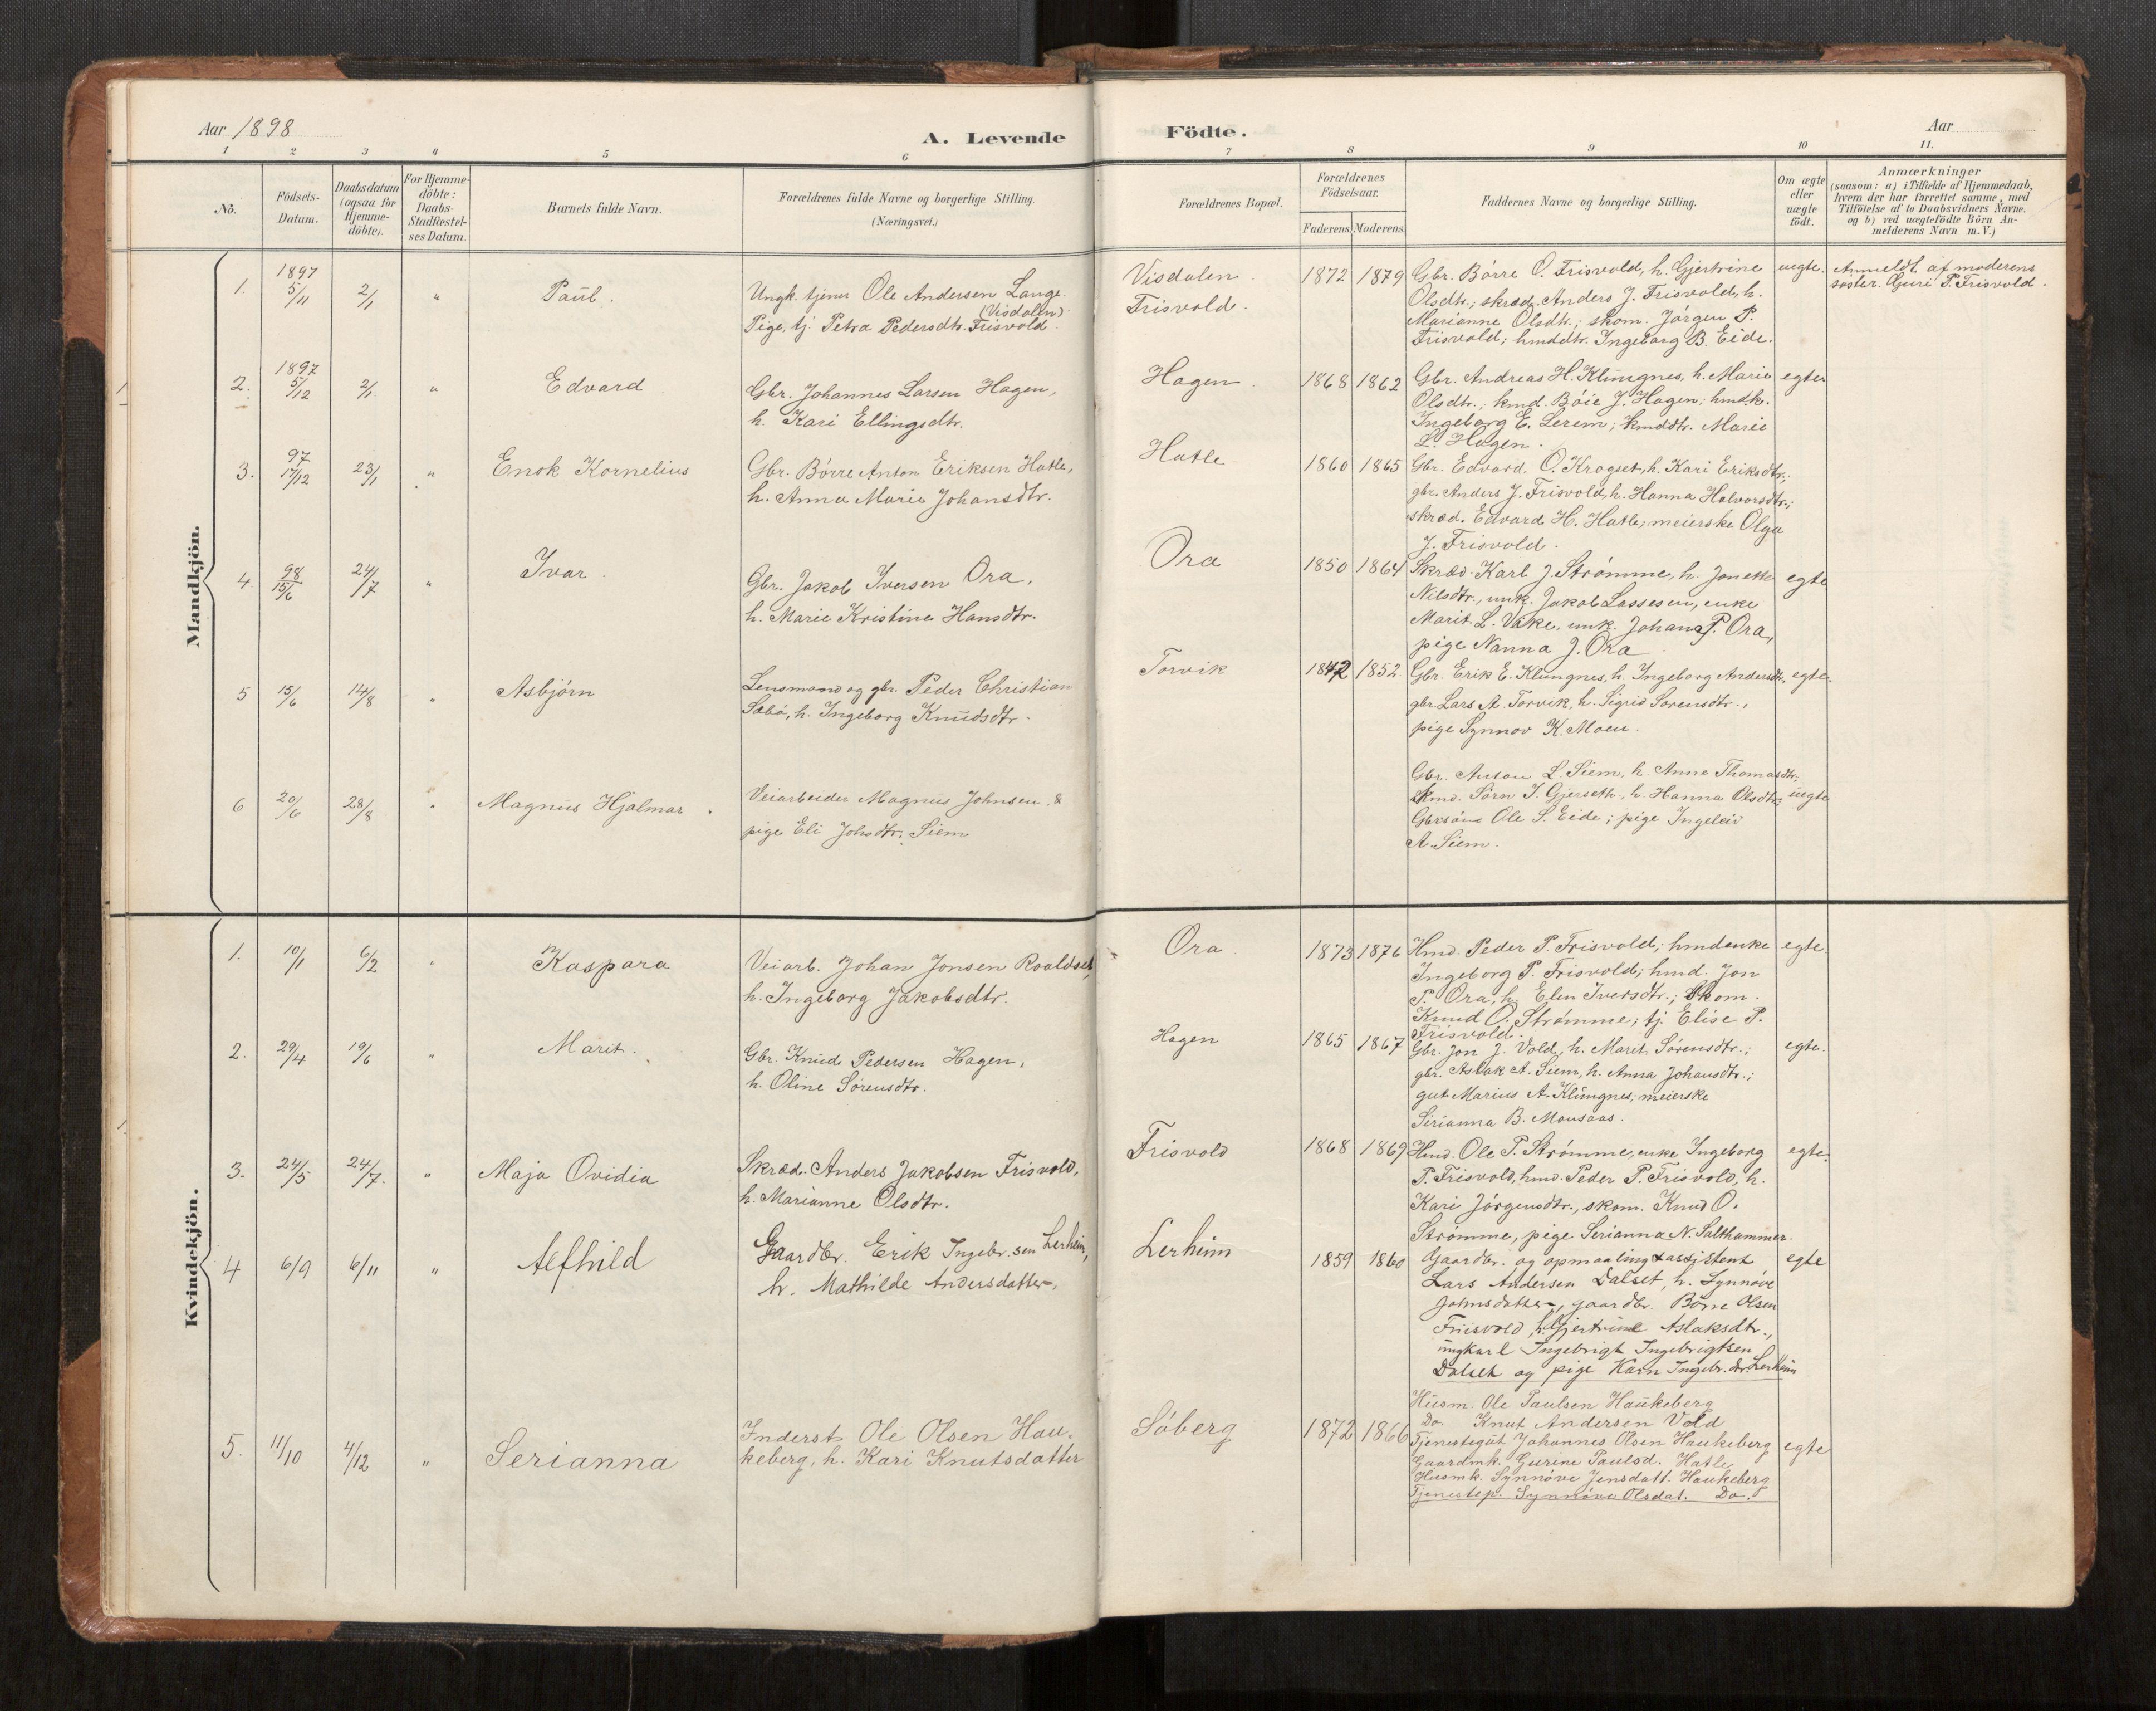 Aar 1898
A. Levende
Födte.
Aar
1 2 3 4 5 6 7 8 9 10 11.
No.
Födsels-
Datum.
Daabsdatum
(ogsaa for
Hjemme-
döbte).
For Hjemme-
döbte:
Daabs-
Stadfæstel-
ses Datum.
Barnets fulde Navn.
Forældrenes fulde Navne og borgerlige Stilling.
(Næringsvei.)
Forældrenes Bopæl.
Forældrenes
Födselsaar.
Faderens. Moderens.
Faddernes Navne og borgerlige Stilling.
Om ægte
eller
uægte
födt.
Anmærkninger
(saasom: a) i Tilfælde af Hjemmedaab,
hvem der har forrettet samme, med
Tilföielse af to Daabsvidners Navne.
og b) ved uægtefödte Börn An-
melderens Navn m.V.)
Mandkjön.
1. 1897 5/11 2/1 " Paul.
Ungk. tjener Ole Andersen Lange
(Visdalen)
Pige, tj. Petra Pedersdtr. Frisvold.
Visdalen.
Frisvold.
1872 1879
Gbr. Börre O. Frisvold, h. Gjertrine
Olsdtr.; skræd. Anders J. Frisvold, h.
Marianne Olsdtr.; skom. Jörgen P.
Frisvold; hmddtr. Ingeborg B. Eide.
uegte.
Anmeldt af moderens
søster. Guri P. Frisvold.
2. 1897 5/12 2/1 " Edvard
Gbr. Johannes Larsen Hagen,
h. Kari Ellingsdtr.
Hagen.
1868 1862
Gbr. Andreas H. Klungnes, h. Marie
Olsdtr.; kmd. Böie J. Hagen; hmdk.
Ingeborg E. Lerem; kmddtr. Marie
L. Hagen.
egte
3. 97 17/12 23/1 " Enok Kornelius
Gbr. Börre Anton Eriksen Hatle,
h. Anna Marie Johansdtr.
Hatle
1860 1865
Gbr. Edvard O. Krogset, h. Kari Eriksdtr.;
gbr. Anders J. Frisvold, h. Hanna Halvorsdtr.;
skræd. Edvard H. Hatle; meierske Olga
J. Frisvold.
4. 98 15/6 24/7 " Ivar.
Gbr. Jakob Iversen Ora,
h. Marie Kristine Hansdtr.
Ora
1850 1864
Skræd. Karl J. Strömme, h. Jonette
Nilsdtr., unk. Jakob Lassesen, enke
Marit L. Vake, unk. Johan P. Ora,
pige Nanna J. Ora
egte
5 15/6 14/8 " Asbjörn
Lensmand og gbr. Peder Christian
Sæbö, h. Ingeborg Knudsdtr.
Torvik
1842 1852.
Gbr. Erik E. Klungnes, h. Ingeborg Andersdtr.,
gbr. Lars A. Torvik, h. Sigrid Sorensdtr.,
pige Synnov K. Moen.
egte.
6 20/6 28/8 " Magnus Hjalmar.
Veiarbeider Magnus Johnsen &
pige Eli Johsdtr. Siem
Gbr. Anton L. Siem, h. Anne Thomasdtr.;
kmd. Sörn S. Gjerseth, h. Hanna Olsdtr.;
Gbrsön Ole S. Eide; pige Ingeleiv
A. Siem.
uegte
Kvindekjön.
1. 10/1 6/2 " Kaspara
Veiarb. Johan Jonsen Roaldset,
h. Ingeborg Jakobsdtr.
Ora
1873 1876
Hmd. Peder P. Frisvold; hmdenke
Ingeborg P. Frisvold; hmd. Jon
P. Ora, h. Elen Iversdtr.; skom.
Knud O. Strömme; tj. Elise P.
Frisvold.
egte.
2. 29/4 19/6 " Marit.
Gbr. Knud Pedersen Hagen,
h. Oline Sörensdtr.
Hagen
1865 1867
Gbr. Jon J. Vold, h. Marit Sörensdtr.;
gbr. Aslak A. Siem, h. Anna Johansdtr.;
gut Marius A. Klungnes; meierske
Serianna B. Monsaas.
egte.
3. 24/5 24/7. " Maja Ovidia
Skræd. Anders Jakobsen Frisvold,
h. Marianne Olsdtr.
Frisvold
1868 1869
Hmd. Ole P. Strømme, enke Ingeborg
P. Frisvold, hmd. Peder P. Frisvold, h.
Kari Jörgensdtr., skom. Knud O.
Strømme, pige Serianna N. Salthammer.
egte.
4 6/9 6/11 " Alfhild
Gaardbr. Erik Ingebr.sen Lerheim,
h. Mathilde Andersdatter,
Lerheim
1859 1860
Gaardbr. og opmaalingsassistent
Lars Andersen Dalset, h. Synnöve
Johnsdatter, gaardbr. Börre Olsen
Friisvold, h. Gjertrine Aslaksdtr.,
ungkarl Ingebrigt Ingebrigtsen
Dalset og pige Karn Ingebr.dtr. Lerheim
egte
5. 11/10 4/12 " Serianna
Inderst Ole Olsen Hau-
keberg, h. Kari Knutsdatter
Söberg
1872 1866
Husm. Ole Paulsen Haukeberg
Do. Knut Andersen Vold
Tjenestegut Johannes Olsen Haukeberg
Gaardmk. Gurine Paulsd. Hatle
Husmk. Synnöve Jensdatt. Haukeberg
Tjenestep. Synnöve Olsdat. Do.
egte